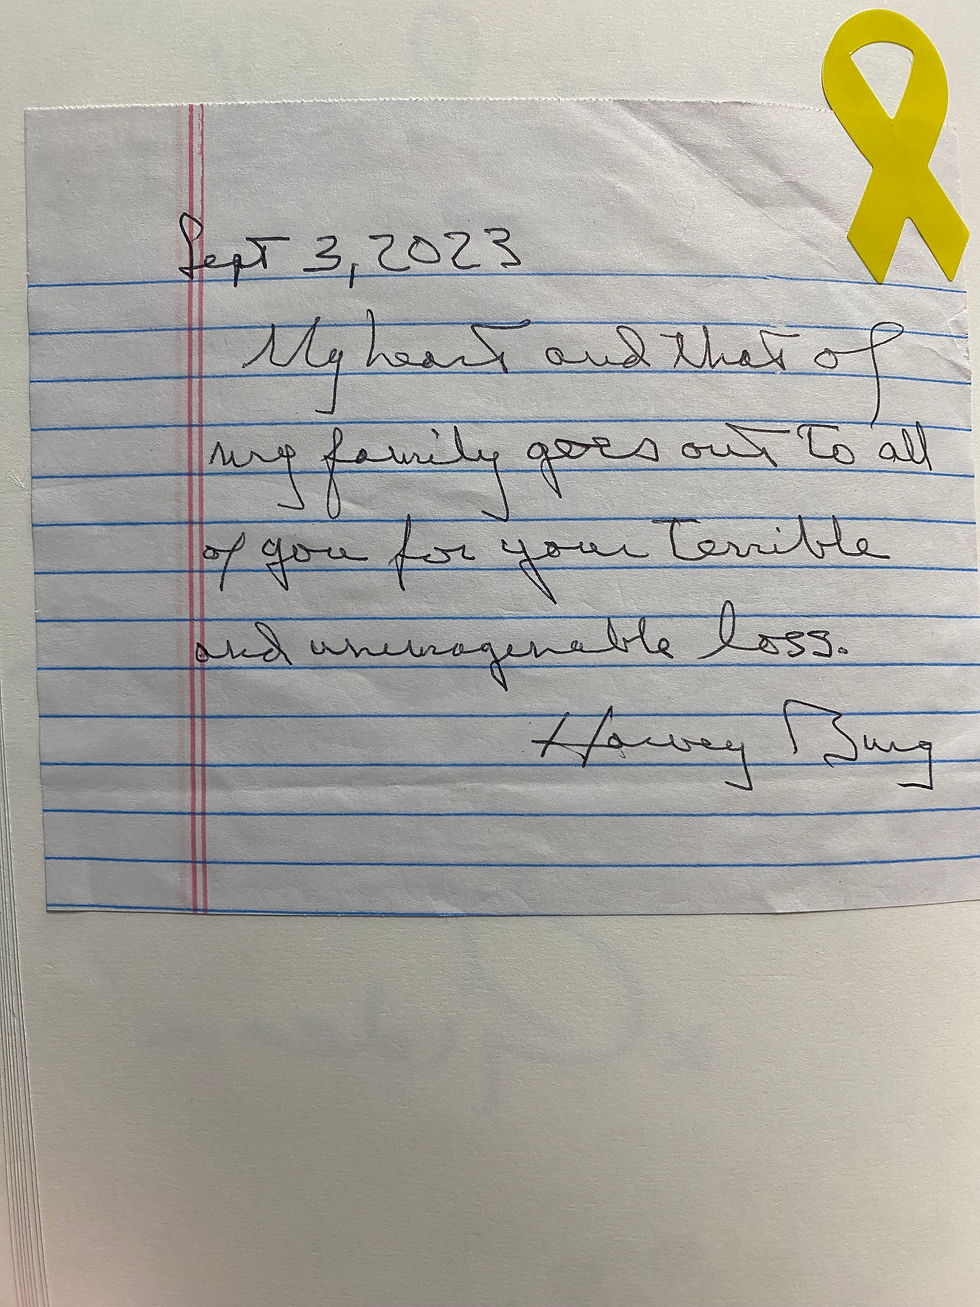 Sept 3, 2023
My heart and that of
my family goes out to all
of you for your terrible
and unimagenable loss.
Harvey Burg